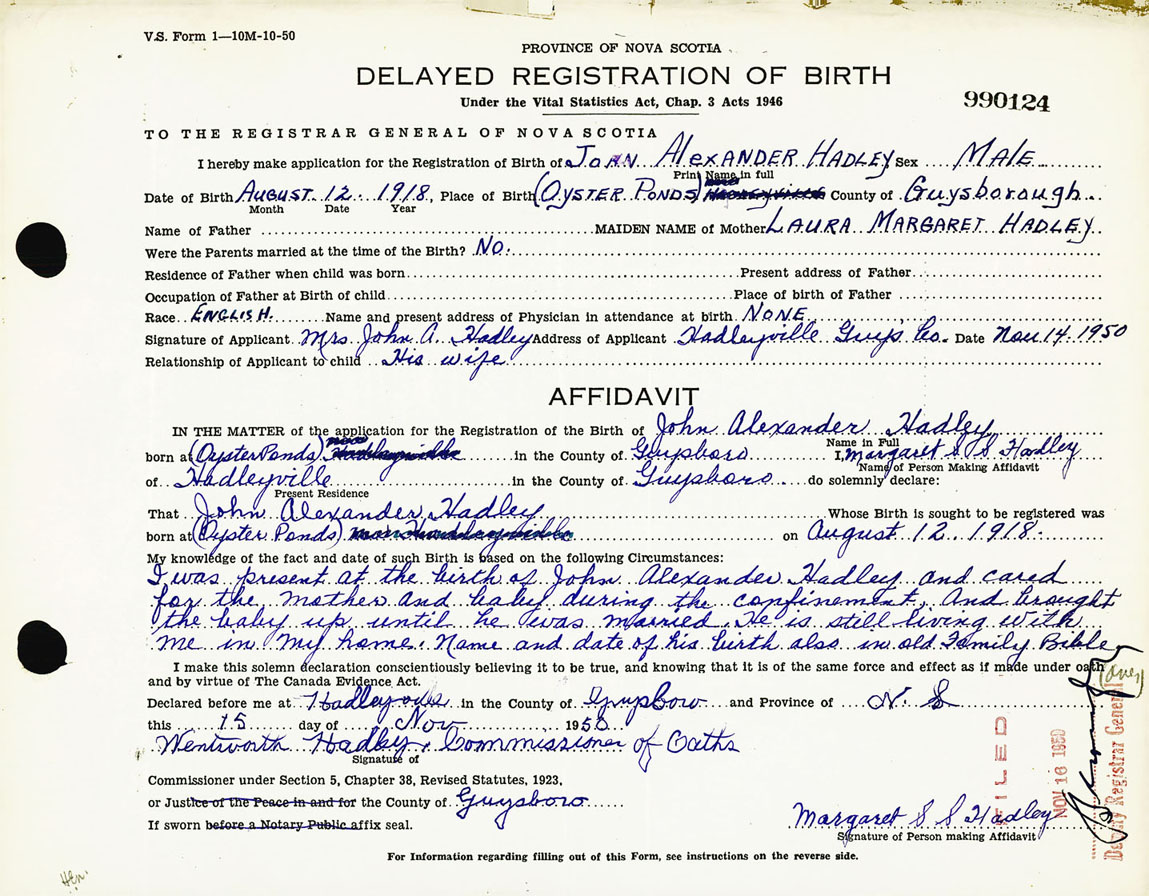 V.S. Form 1—10M-10-50
PROVINCE OF NOVA SCOTIA
DELAYED REGISTRATION OF BIRTH
990124
Under the Vital Statistics Act, Chap. 3 Acts 1946
TO THE REGISTRAR GENERAL OF NOVA SCOTIA
I hereby make application for the Registration of Birth of John Alexander Hadley Sex Male
Print Name in full
Date of Birth August 12 1918, Place of Birth (Oyster Ponds) now Hadleyville County of Guysborough
Month Date Year
Name of Father MAIDEN NAME of Mother Laura Margaret Hadley
Were the Parents married at the time of the Birth? No.
Residence of Father when child was born Present address of Father
Occupation of Father at Birth of child Place of birth of Father
Race English. Name and present address of Physician in attendance at birth None
Signature of Applicant Mrs. John A. Hadley Address of Applicant Hadleyville Guys Co. Date Nov 14. 1950
Relationship of Applicant to child His wife
AFFIDAVIT
IN THE MATTER of the application for the Registration of the Birth of John Alexander Hadley
Name in Full
born at (Oyster Ponds) now Hadleyville in the County of Guysboro I, Margaret S S Hadley
Name of Person Making Affidavit
of Hadleyville in the County of Guysboro do solemnly declare:
Present Residence
That John Alexander Hadley Whose Birth is sought to be registered was
born at (Oyster Ponds) now Hadleyville on August 12. 1918.
My knowledge of the fact and date of such Birth is based on the following Circumstances:
I was present at the birth of John Alexander Hadley and cared
for the Mother and baby during the confinement. And brought
the baby up until he was married. He is still living with
me in my home. Name and date of his birth also in old Family Bible
I make this solemn declaration conscientiously believing it to be true, and knowing that it is of the same force and effect as if made under oath
and by virtue of The Canada Evidence Act.
Declared before me at in the County of and Province of N. S
this 15 day of Nov 1950
Wentworth Hadley. Commissioner of Oaths
Signature of
Commissioner under Section 5, Chapter 38, Revised Statutes, 1923,
or Justice of the Peace in and for the County of Guysboro
If sworn before a Notary Public affix seal.
Margaret S S Hadley
Signature of Person making Affidavit
For Information regarding filling out of this Form, see instructions on the reverse side.
FILED
NOV 16 1950
Deputy Registrar General